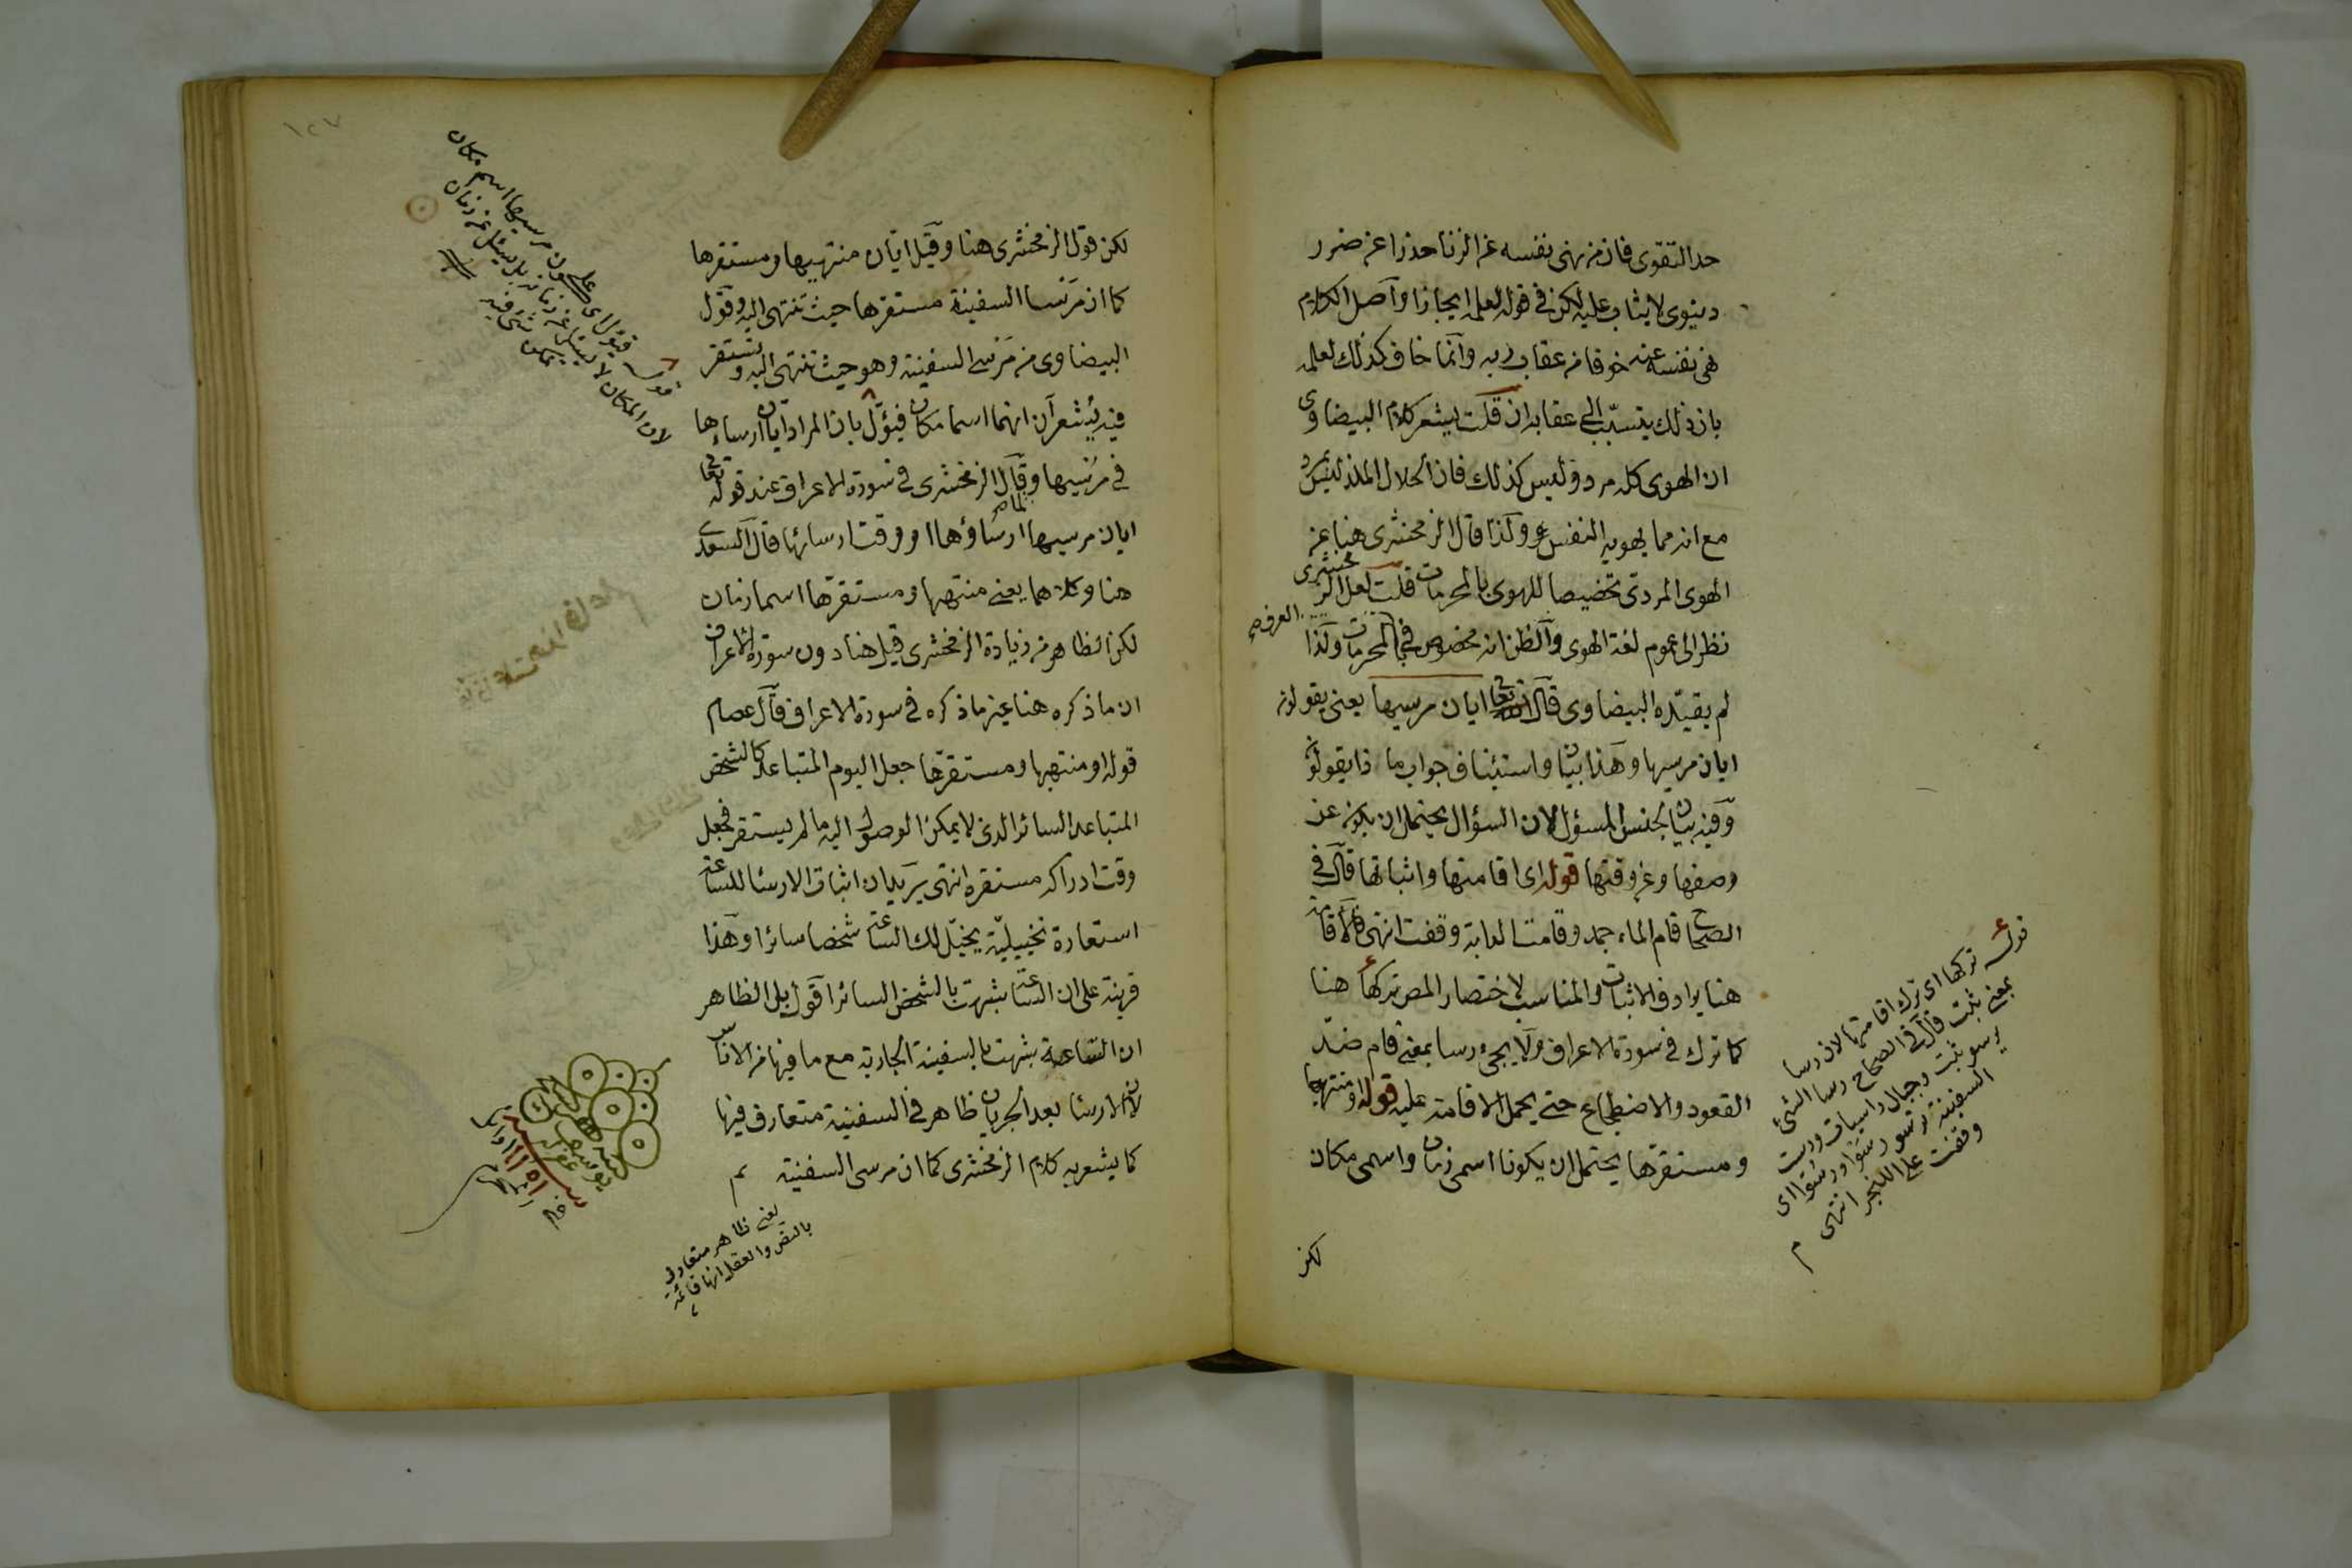 حد التقوى فان من نهى نفسه عن الزنا حذرا عن ضرر
دنيوى لا يثاب عليه لكن فى قوله لعلمه ايجازا واصل الكلام
نهى نفسه عنه خوفا من عقاب ربه وانما خاف كذلك لعلمه
بان ذلك يتسبب الى عقابه ان قلت يشعر كلام البيضاوى
ان الهوى كله مرد وليس كذلك فان الحلال الملذ ليس بمرد
مع انه مما يهويه النفس ولذا قال الزمخشرى هنا عن
الهوى المردى تخصيصا للهوى بالمحرمات قلت لعل الزمخشرى
نظر الى عموم لغة الهوى والظن انه مخصوص فى العرف بالمحرمات ولذا
لم يقيده البيضاوى قال تعالى ايان مرسيها يعنى يقولون
ايان مرسيها وهذا بيان واستيناف جواب ما ذا يقولون
وفيه بيان لجنس المسؤل لان السؤال يحتمل ان يكون عن
وصفها وعن وقتها قوله اى اقامتها واثباتها قال فى
الصحاح اقام الماء جمد وقامت الدابة وقفت انتهى فالاقامة
هنا يرادف الاثبات والمناسب لاختصار المص تركها هنا
كما ترك فى سورة الاعراف ولا يجئ رسا بمعنى قام ضد
القعود والاضطجاع حتى يحمل الاقامة عليه قوله او منتهيها
ومستقرها يحتمل ان يكونا اسمى زمان واسمى مكان
لكن
قوله تركها اى ترك اقامتها لان رسا
بمعنى ثبت قال فى الصحاح رسا الشئ
يرسو ثبت وجبال راسيات ورست
السفينة ترسو رسوا ورسوا اى
وقفت على اللنجر انتهى م
١٢٧
لكن قول الزمخشرى هنا وقيل ايان منتهيها ومستقرها
كما ان مرسا السفينة مستقرها حيث تنتهى اليه وقول
البيضاوى من مرسى السفينة وهو حيث تنتهى اليه وتستقر
فيه يشعر ان انهما اسما مكان فيؤل بان المراد ايان ارساءها
فى مرسيها وقال الزمخشرى فى سورة الاعراف عند قوله تعالى
ايان مرسيها ارساؤها او وقت ارسائها قال السعدى
هنا وكلاهما يعنى منتهيها ومستقرها اسما زمان
لكن الظاهر من زيادة الزمخشرى قيل هنا دون سورة الاعراف
ان ما ذكره هنا غير ما ذكره فى سورة الاعراف قال عصام
قوله او منتهيها ومستقرها جعل اليوم المتباعد كالشخص
المتباعد السائر الذى لا يمكن الوصول اليه ما لم يستقر فجعل
وقت ادراكه مستقره انتهى يريد ان اثبات الارسا للساعة
استعارة تخييلية يخيل لك الساعة شخصا سائرا وهذا
قرينة على ان الساعة شبهت بالشخص السائر اقول بل الظاهر
ان الساعة شبهت بالسفينة الجارية مع ما فيها من الاناس
لان الارسا بعد الجريان ظاهر فى السفينة متعارف فيها
كما يشعر به كلام الزمخشرى كما ان مرسى السفينة م
يعنى ظاهر متعارف
لان المكان لا يسئل عن زمانه بل يسئل عن زمان